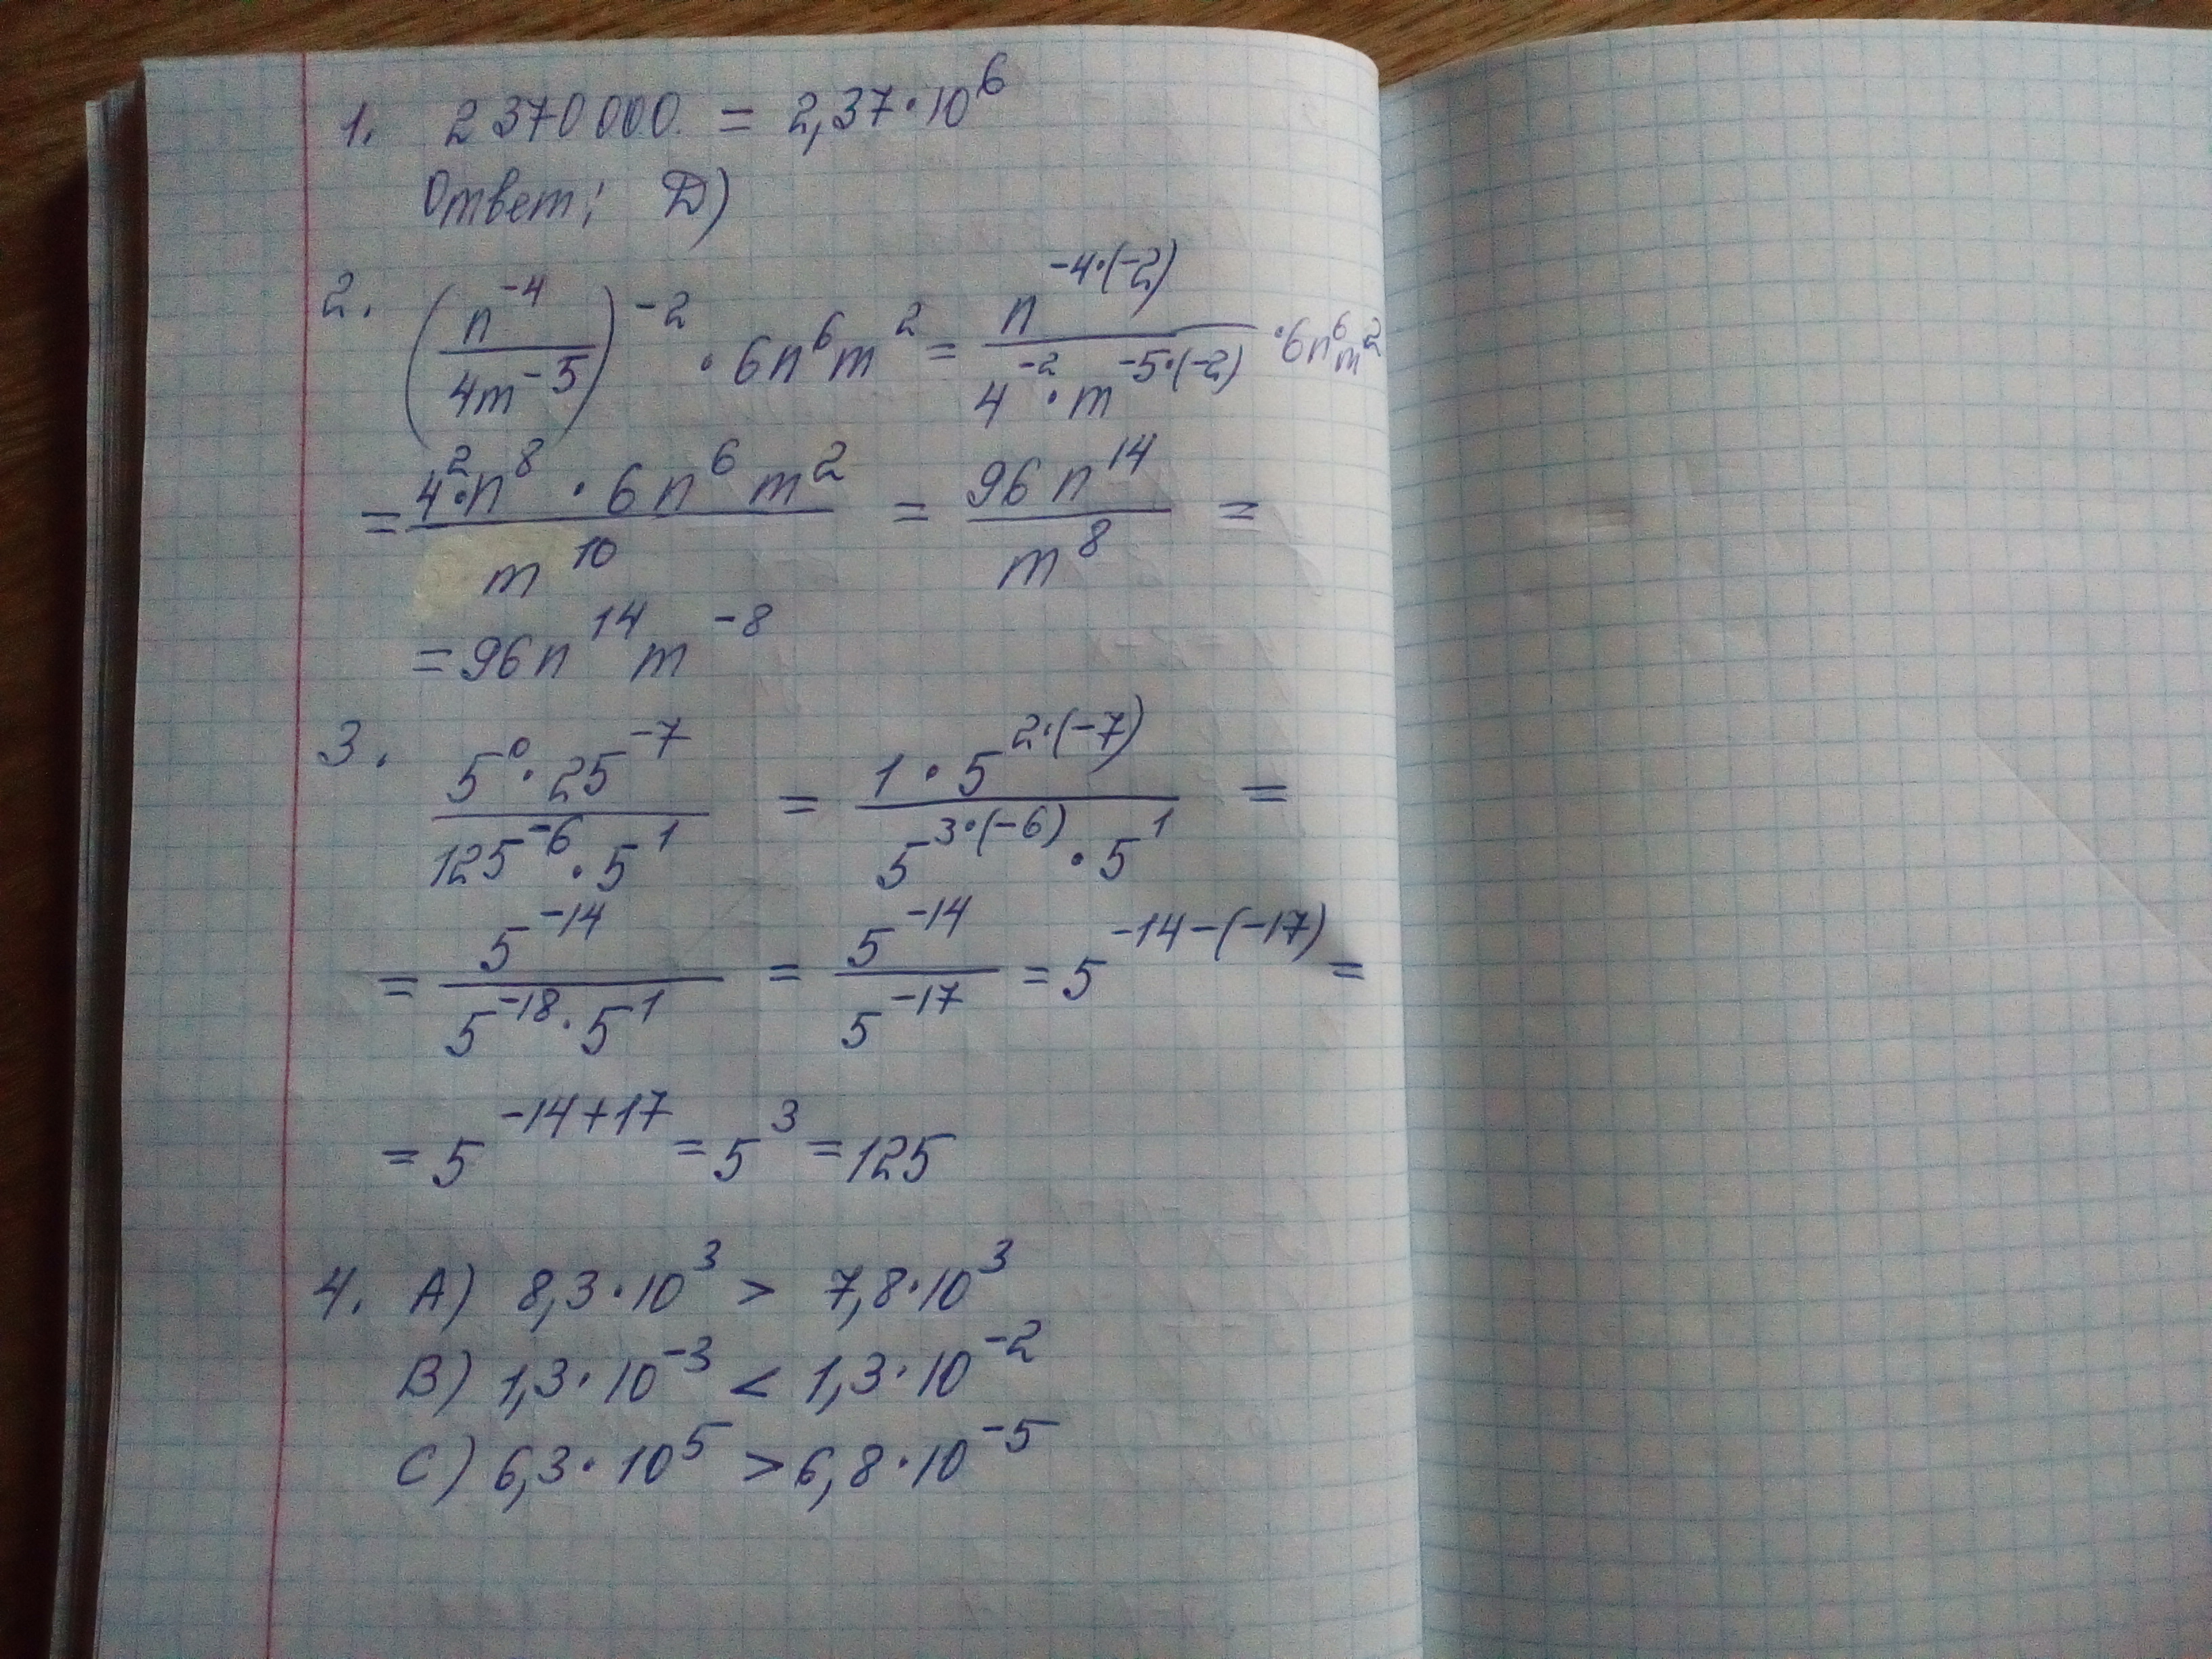 1. 2370000. = 2,37·10⁶
Ответ: D)
2. (n⁻⁴/4m⁻⁵)⁻² · 6n⁶m² = n⁻⁴·⁽⁻²⁾/4⁻²·m⁻⁵·⁽⁻²⁾ ·6n⁶m²
= 4²·n⁸ · 6n⁶m²/m¹⁰ = 96n¹⁴/m⁸ =
= 96n¹⁴m⁻⁸
3. 5⁰·25⁻⁷/125⁻⁶·5¹ = 1·5²·⁽⁻⁷⁾/5³·⁽⁻⁶⁾·5¹ =
= 5⁻¹⁴/5⁻¹⁸·5¹ = 5⁻¹⁴/5⁻¹⁷ = 5⁻¹⁴⁻⁽⁻¹⁷⁾ =
= 5⁻¹⁴⁺¹⁷ = 5³ = 125
4. A) 8,3·10³ > 7,8·10³
B) 1,3·10⁻³ < 1,3·10⁻²
C) 6,3·10⁵ > 6,8·10⁻⁵